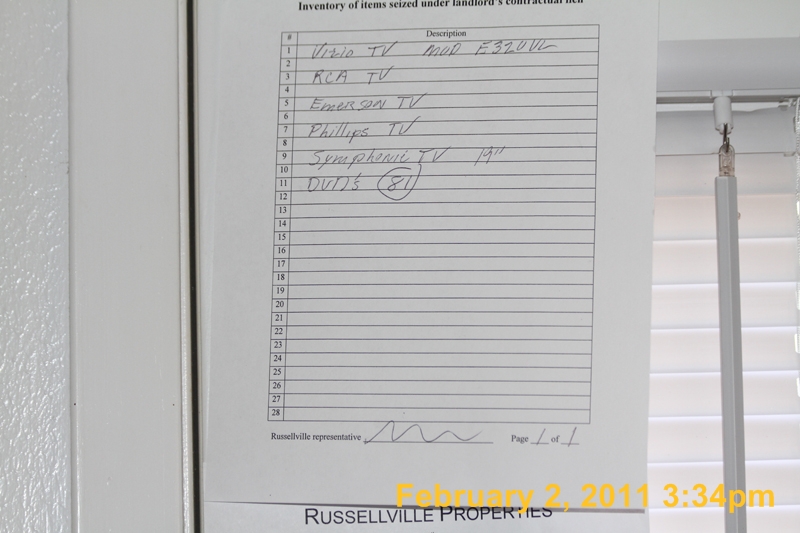 Inventory of items seized under landlord's contractual lien
# Description
1 Vizio TV MOD E320VL
2
3 RCA TV
4
5 Emerson TV
6
7 Phillips TV
8
9 Symphonic TV 19"
10
11 DVD's 81
12
13
14
15
16
17
18
19
20
21
22
23
24
25
26
27
28
Russellville representative Page 1 of 1
February 2, 2011 3:34pm
RUSSELLVILLE PROPERTIES